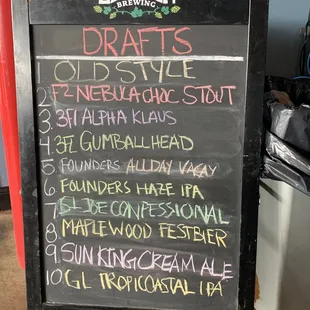 BREWING
DRAFTS
1 OLD STYLE
2. F2 NEBULA CHOC STOUT
3. 3FI ALPHA KLAUS
4 3F GUMBALLHEAD
5 FOUNDERS ALLDAY VACAY
6 FOUNDERS HAZE IPA
7 ST JOE CONFESSIONAL
8 MAPLEWOOD FESTBIER
9 SUN KING CREAM ALE
10. GL TROPICOASTAL IPA